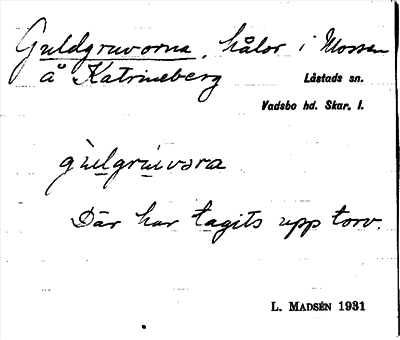 Guldgruvorna, hålor i Mossen
å Katrineberg
Låstads sn.
Vadsbo hd. Skar. l.
gulgruvɔra
Där har tagits upp torv.
L. MADSÉN 1931